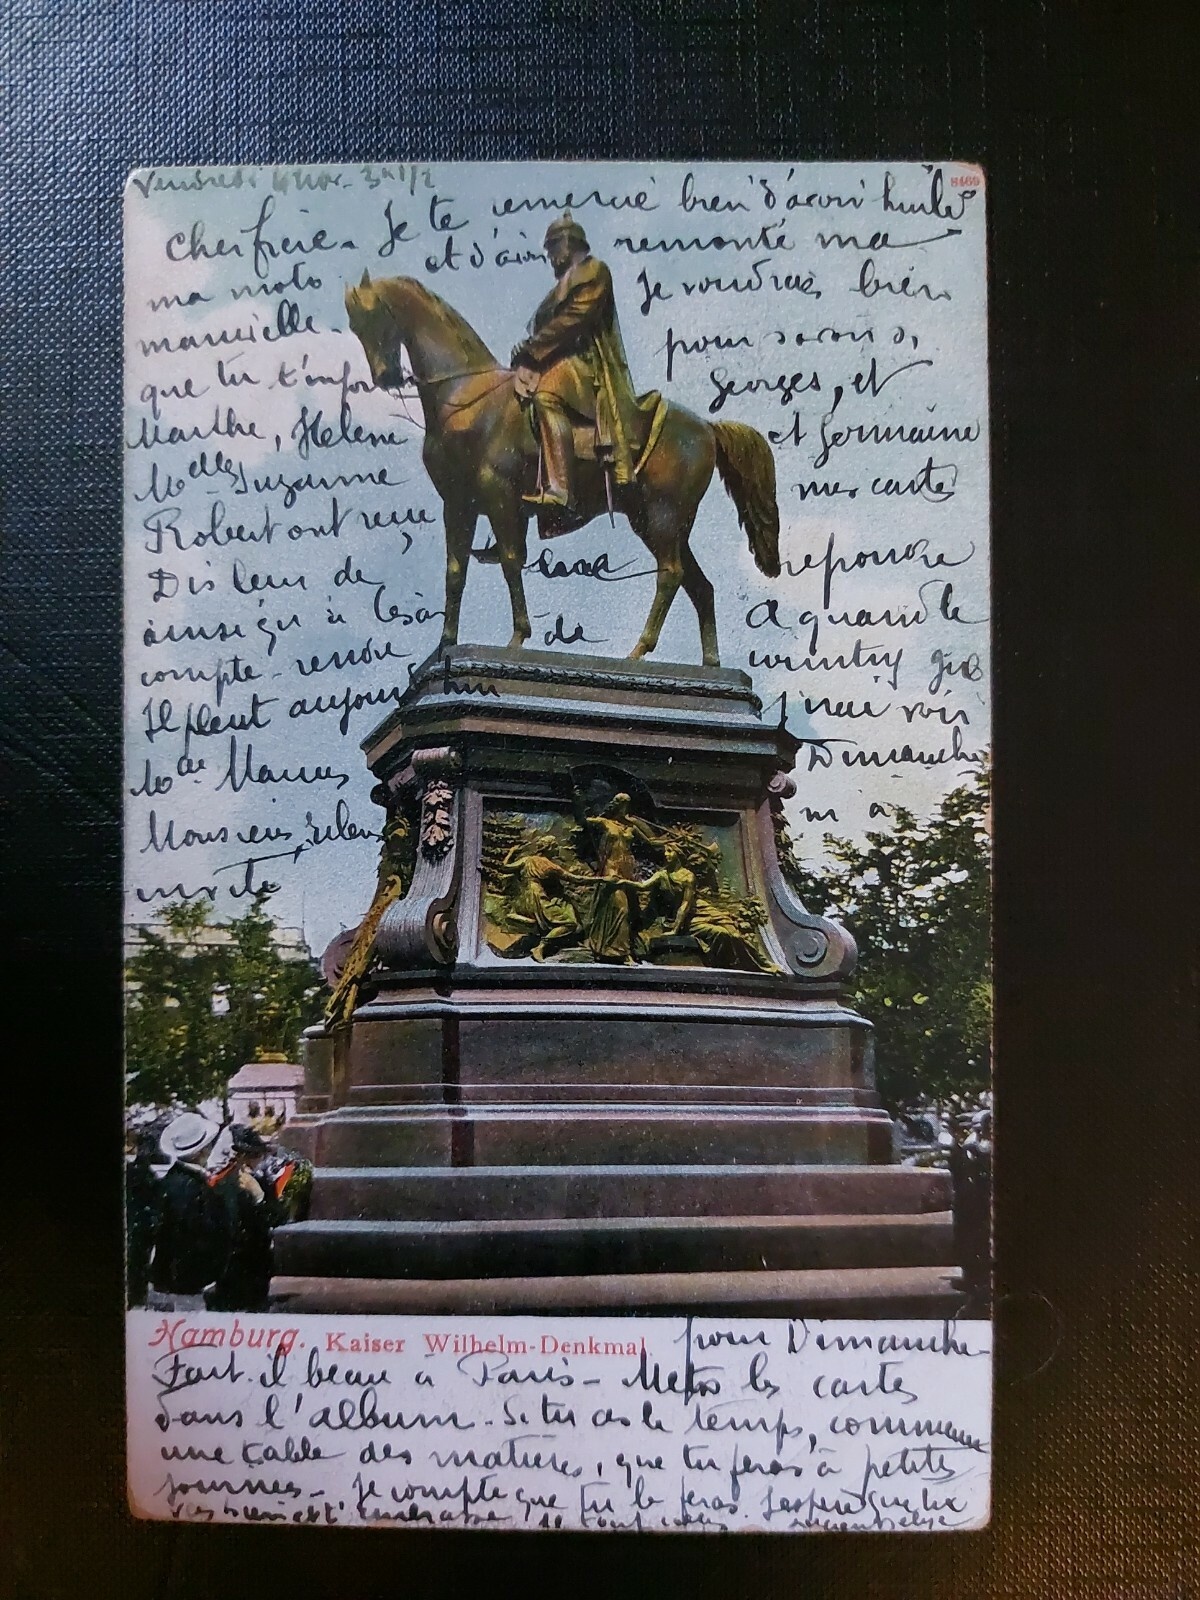 Vendredi 4 nov. 3h 1/2
8469
Cher frère. Je te remercie bien d'avoir huilé
ma moto et d'avoir remonté ma
manuelle. Je voudrais bien
que tu t'informes pour savoir si
Marthe, Helène Georges, et
Melles Suzanne et Germaine
Robert ont reçu mes cartes
Dis leur de repondre
ainsi qu'à A quand le
compte-rendu de
Il pleut aujourd'hui j'irai voir
Mme Dimanche
Monsieur m'a
invité pour Dimanche-
Hamburg. Kaiser Wilhelm-Denkmal.
Fait-il beau à Paris - Mets les cartes
dans l'album - Si tu as le temps, commence
une table des matières, que tu feras à petites
journées - Je compte que tu le feras. J'espère que tu
vas bien et t'embrasse de tout coeur